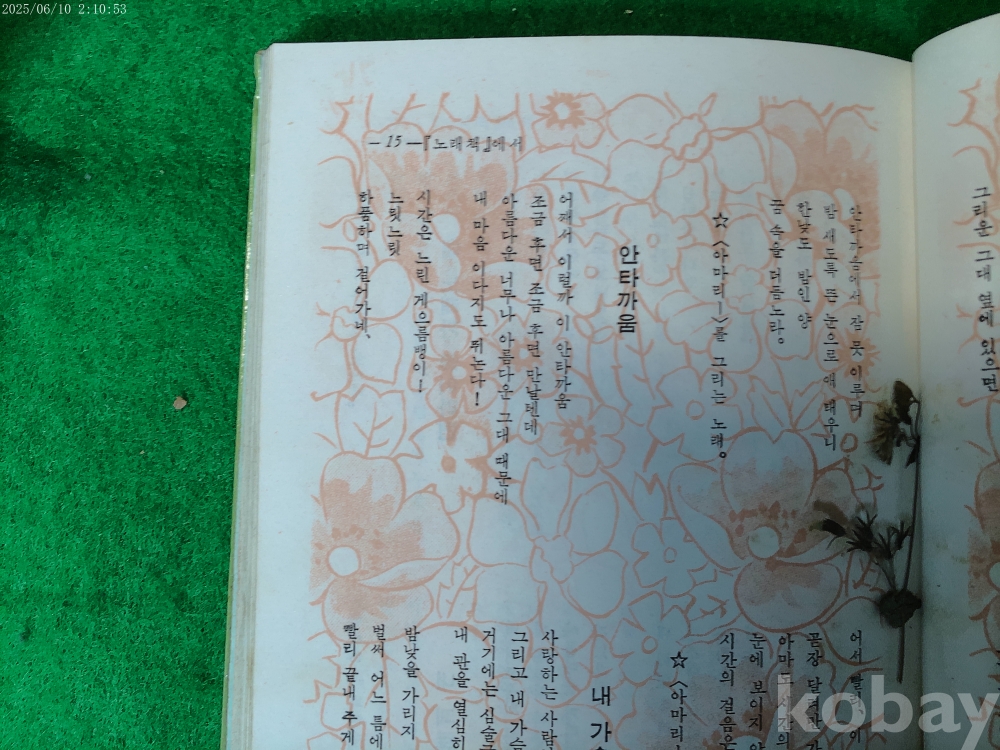 2025/06/10 2:10:53
그리운 그대 옆에 있으면
안타까움에서 잠 못 이루며
밤 새도록 뜬 눈으로 애 태우니
한낮도 밤인 양
꿈 속을 더듬노라。
☆〈아마리ー〉를 그리는 노래。
안타까움
어째서 이럴까 이 안타까움
조금 후면 조금 후면 만날텐데
아름다운 너무나 아름다운 그대 때문에
내 마음 이다지도 뛰는다!
시간은 느린 게으름뱅이!
느릿느릿
하품하며 걸어가네、
— 15 —『노래책』에서
어서
곧장
눈에 보이지
시간의 걸음
☆〈아마리
내
사랑하는 사람
그리고 내 가슴
거기에는 심술
내 관을 열심히
밤낮을 가리지
벌써 어느 틈에
빨리 끝내 주게
kobay